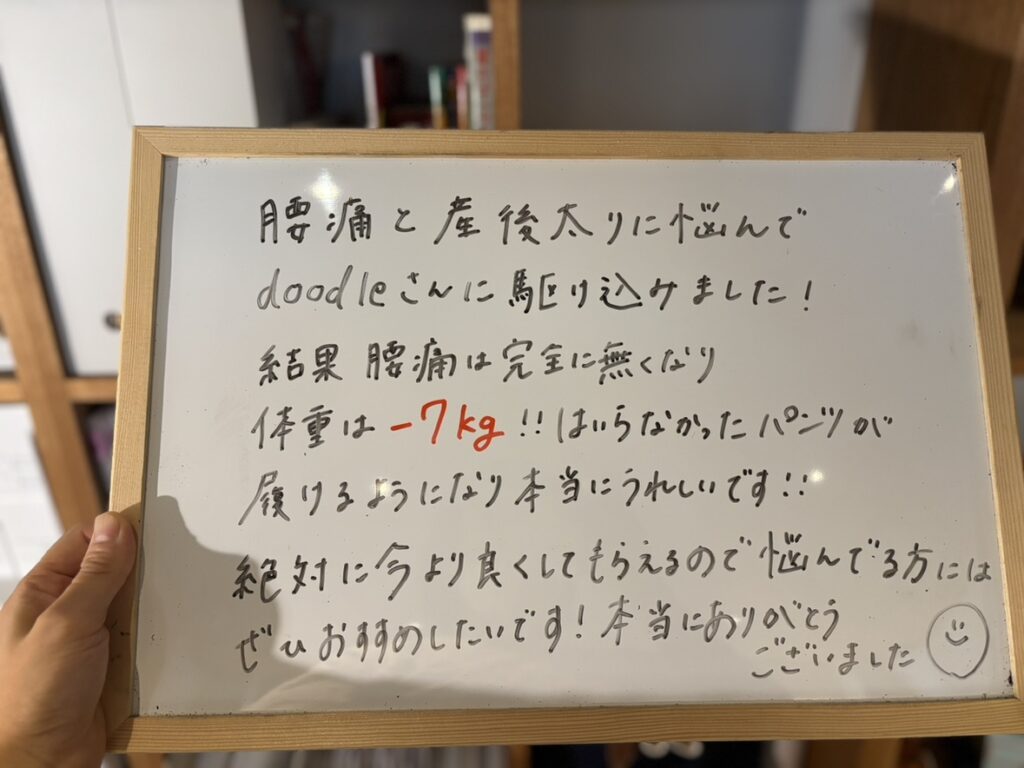 腰痛と産後太りに悩んで
doodleさんに駆け込みました!
結果 腰痛は完全に無くなり
体重は-7kg!!はいらなかったパンツが
履けるようになり本当にうれしいです!!
絶対に今より良くしてもらえるので悩んでる方には
ぜひおすすめしたいです!本当にありがとう
ございました